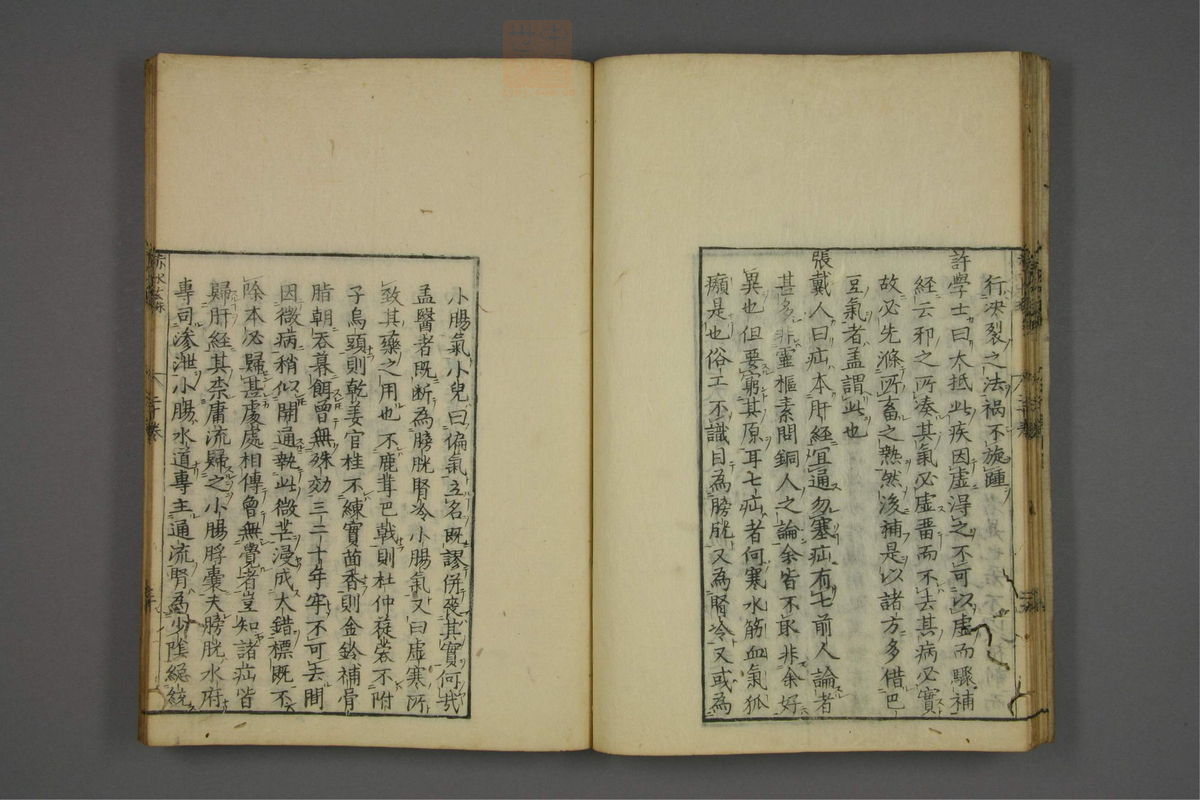 行决裂之法禍不旋踵
許學士曰大抵此疾因虛得之不可以虛而驟補
經云邪之所凑其氣必虛畱而不去其病必實
故必先滌所畜之熱然後補是以諸方多借巴
豆氣者盖謂此也
張戴人曰疝本肝經宜通勿塞疝有七前人論者
甚多非靈樞素問銅人之論余皆不取非余好
異也但要窮其原耳七疝者何寒水筋血氣狐
㿗是也俗工不識目為膀胱又為腎冷又或為
小腸氣小兒曰偏氣立名既謬併喪其實何哉
盖醫者既断為膀胱腎冷小腸氣又曰虛寒所
致其藥之用也不鹿茸巴戟則杜仲蓯蓉不附
子烏頭則乾姜官桂不練實茴香則金鈴補骨
脂朝吞暮餌曾無殊効三二十年牢不可去間
因微病稍似開通執此微芒浸成大錯標既不
除本必歸甚處處相傳曾無覺者豈知諸疝皆
歸肝經其柰庸流歸之小腸脬囊夫膀胱水府
専司渗泄小腸水道専主通流腎為少陰總統
赤水玄珠
二十卷